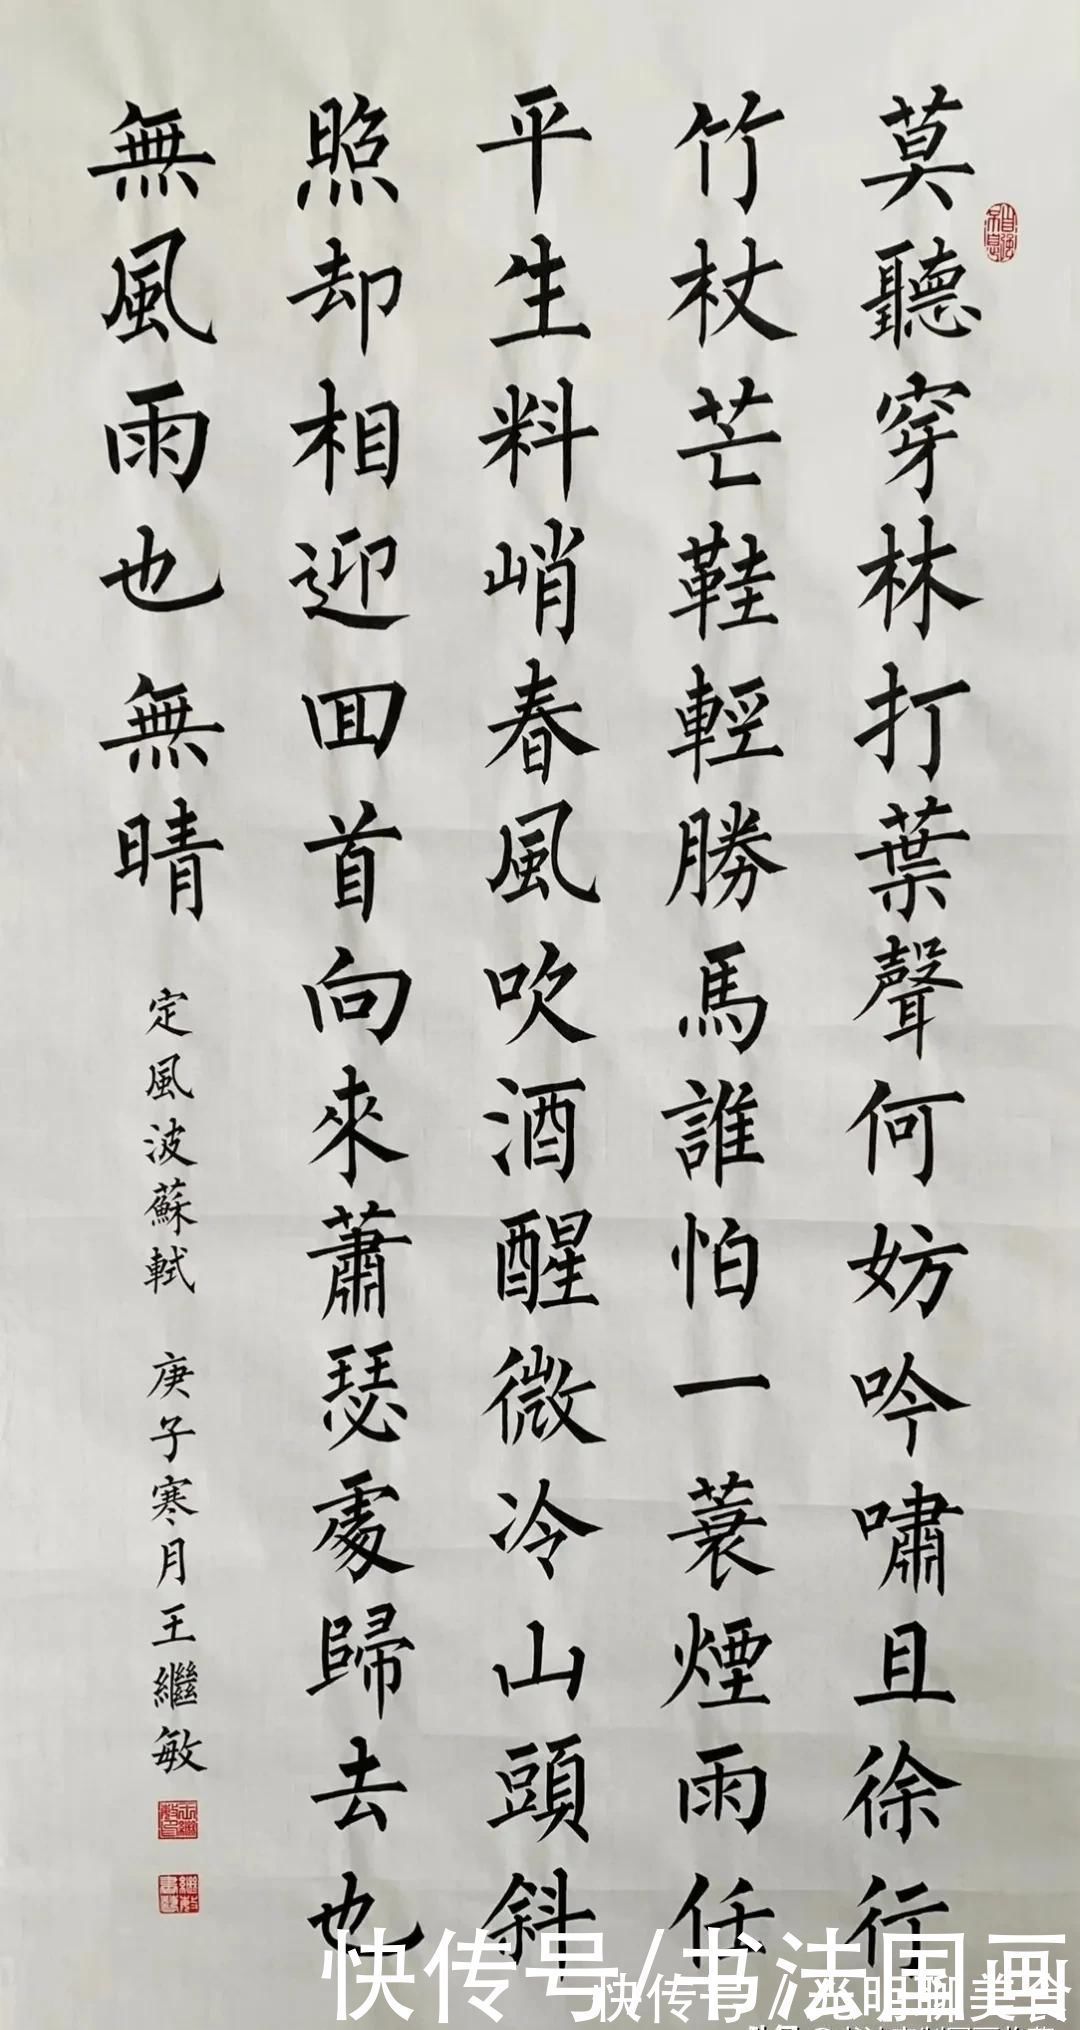 莫聽穿林打葉聲何妨吟嘯且徐行
竹杖芒鞋輕勝馬誰怕一蓑煙雨任
平生料峭春風吹酒醒微冷山頭斜
照却相迎回首向來蕭瑟處歸去也
無風雨也無晴
定風波蘇軾 庚子寒月王繼敏
快传号/书法国画